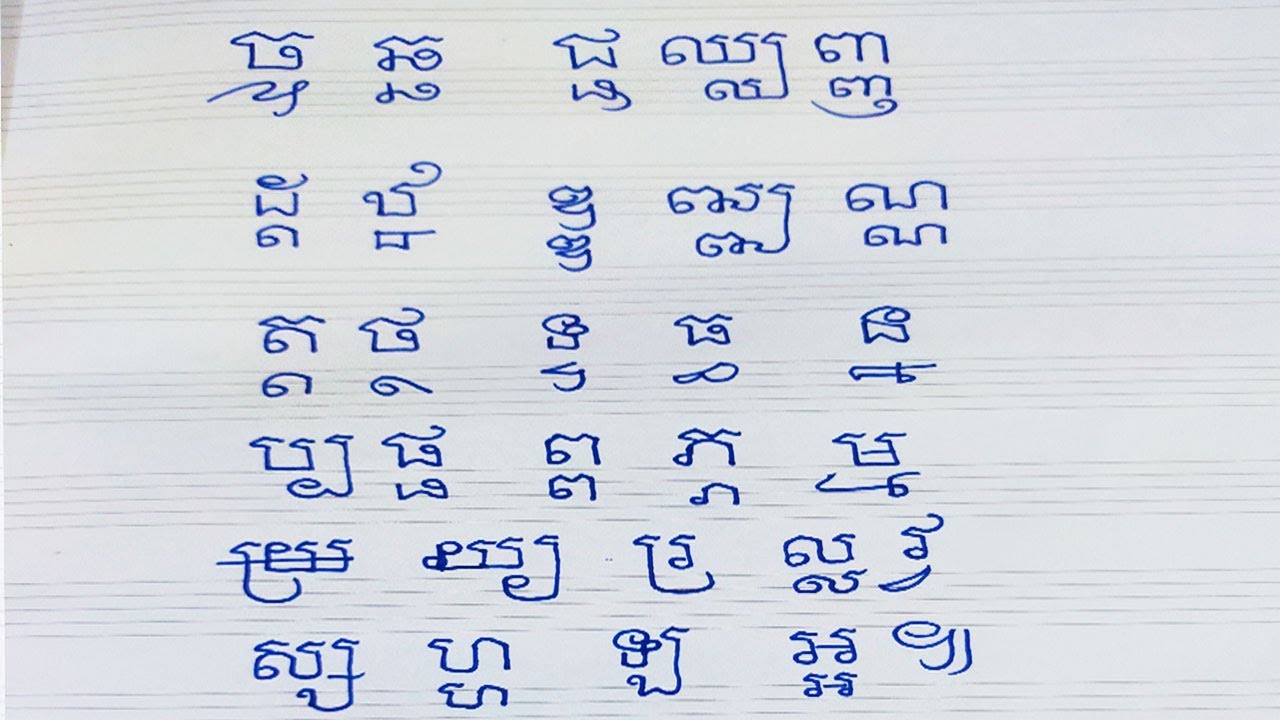 ច្ច ឆ្ឆ ជ្ជ ឈ្ឈ ញ្ញ
ដ្ដ ឋ្ឋ ឌ្ឌ ឍ្ឍ ណ្ណ
ត្ត ថ្ថ ទ្ទ ធ្ធ ន្ន
ប្ប ផ្ផ ព្ព ភ្ភ ម្ម
យ្យ រ្រ ល្ល វ្វ
ស្ស ហ្ហ ឡ្ឡ អ្អ